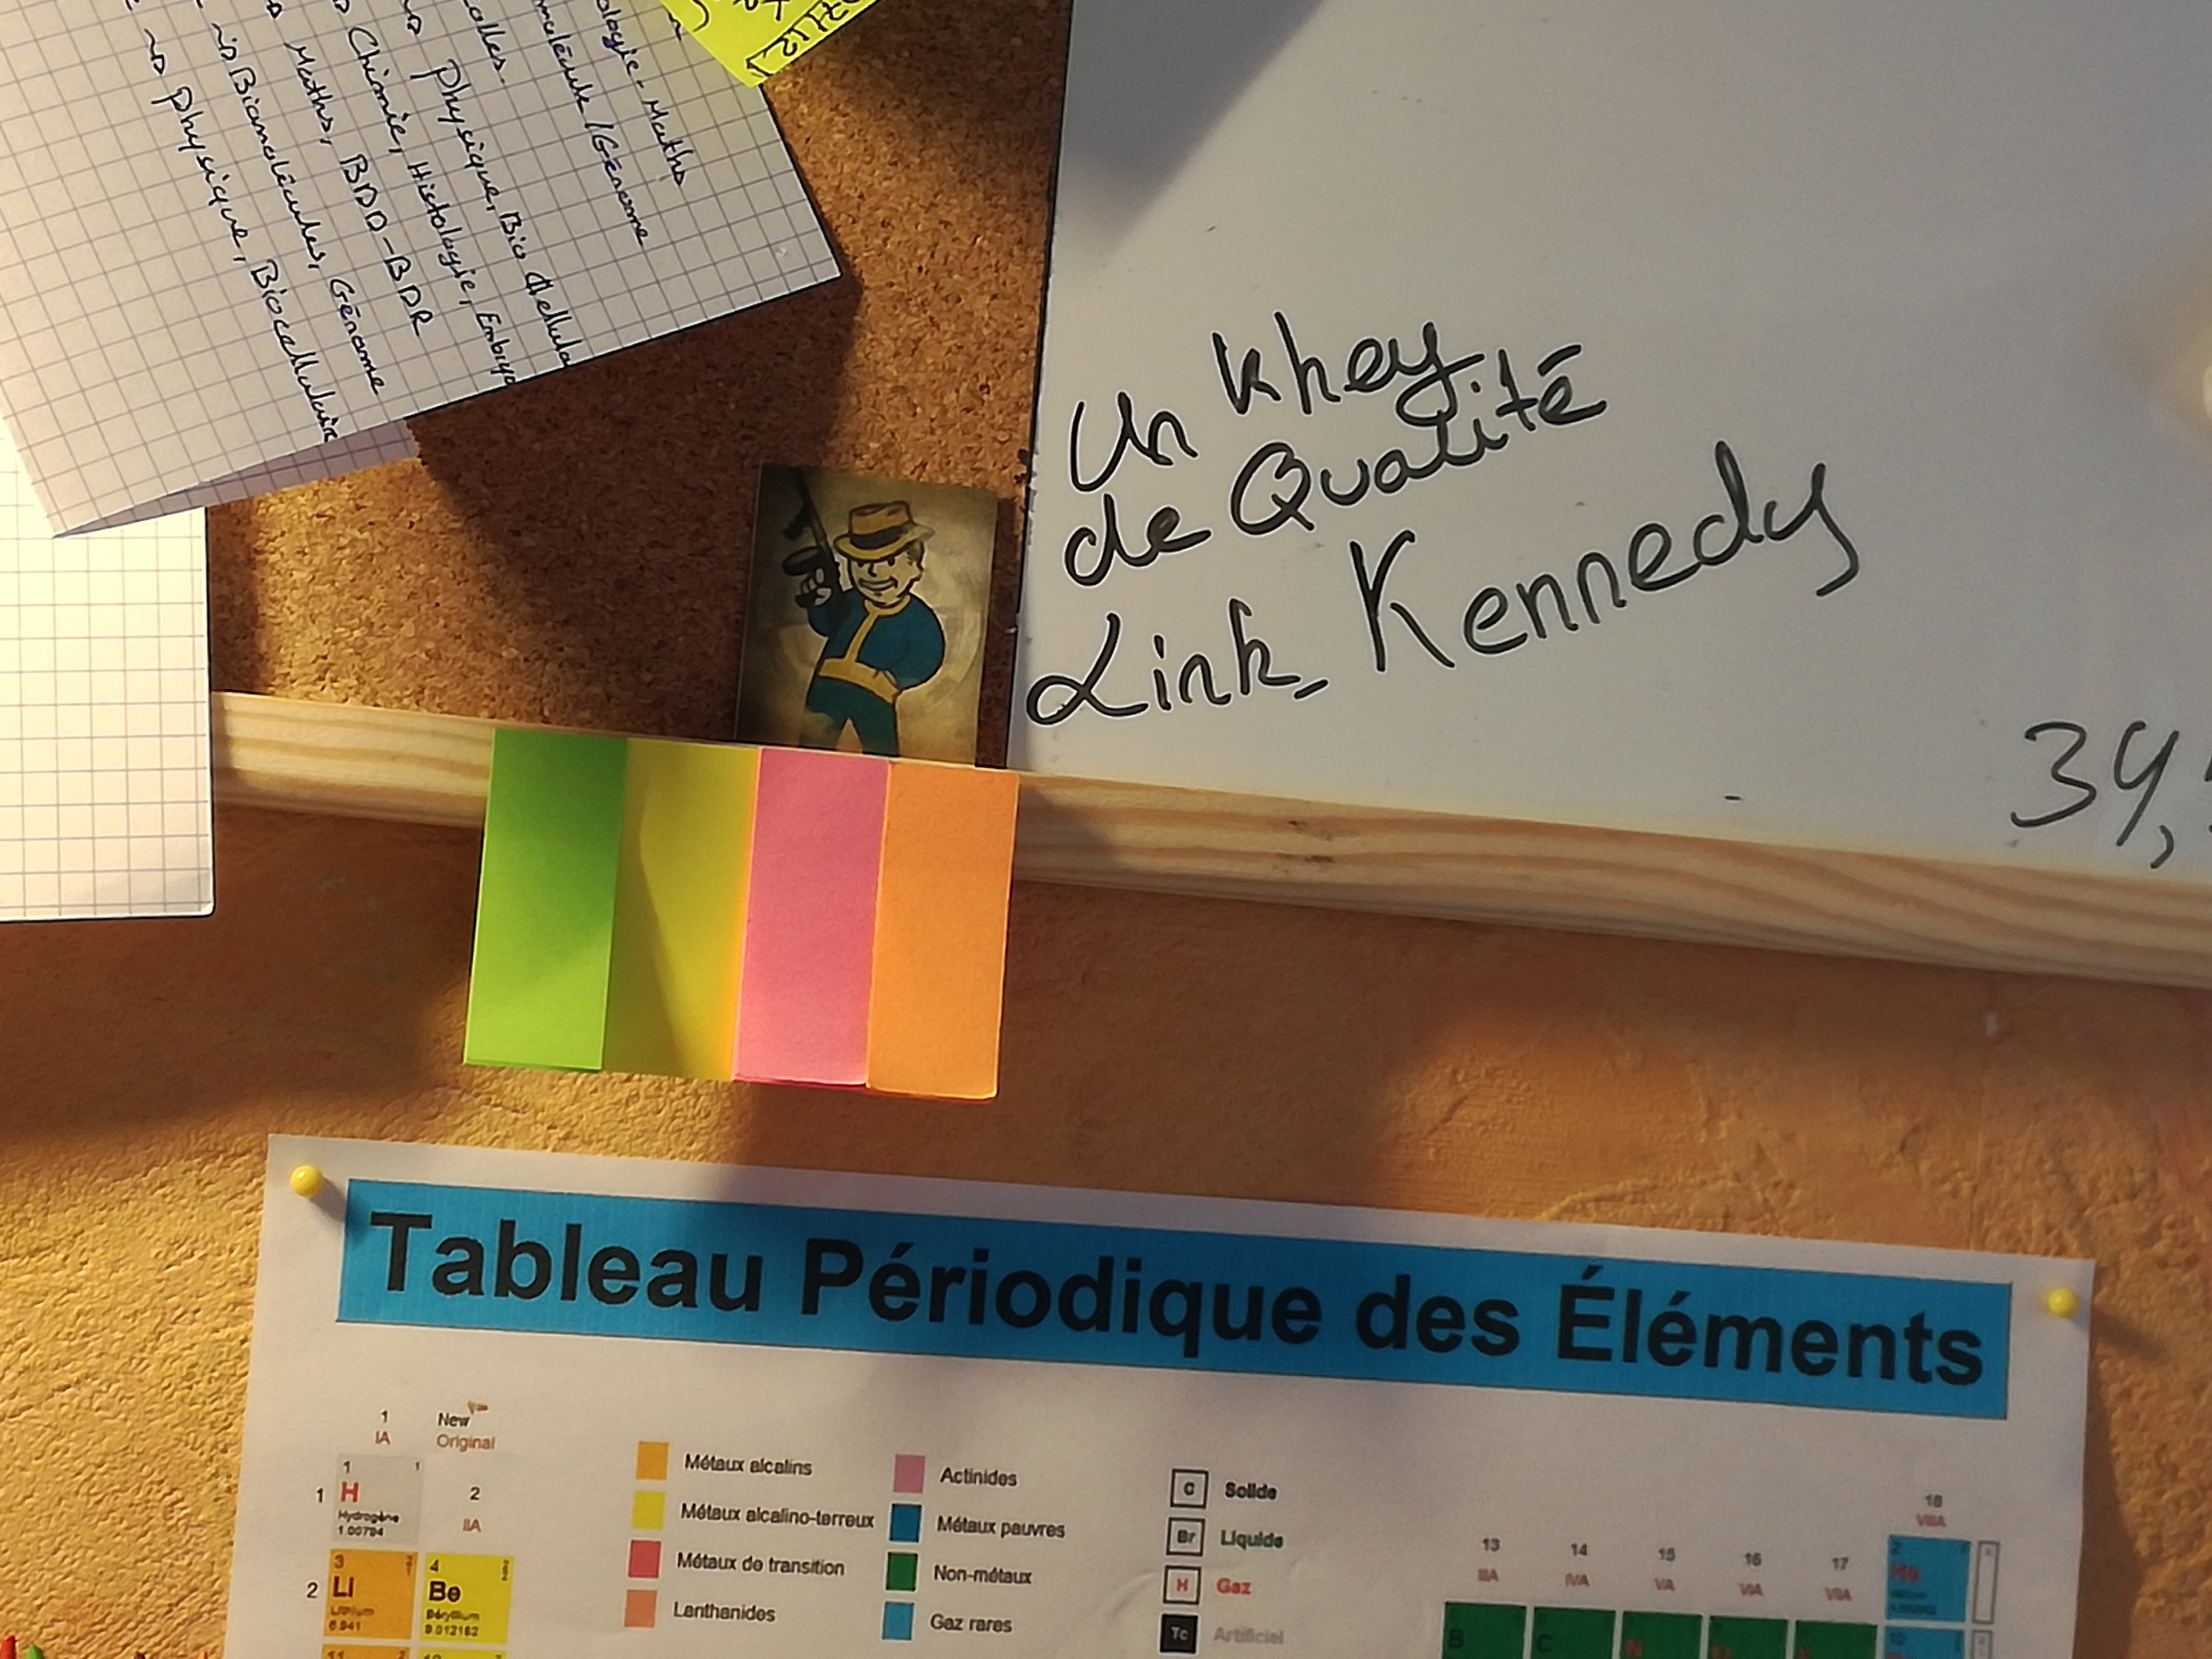 Physique, Biocellulaire
Biomolécules, Génome
Maths, BDD-BDR
Chimie, Histologie, Embryo
Physique, Bio Cellula
molécule / Génome
ologie. Maths
Un khey
de Qualité
Link_Kennedy
34,
Tableau Périodique des Éléments
1
IA
New
Original
1 1
H
Hydrogène
1.00794
1
2
IIA
2
3
Li
Lithium
6.941
4
Be
Béryllium
9.012182
11
12
Métaux alcalins
Métaux alcalino-terreux
Métaux de transition
Lanthanides
Actinides
Métaux pauvres
Non-métaux
Gaz rares
C Solide
Br Liquide
H Gaz
Tc Artificiel
13
IIIA
14
IVA
15
VA
16
VIA
17
VIIA
18
VIIIA
B
C
N
2
He
10